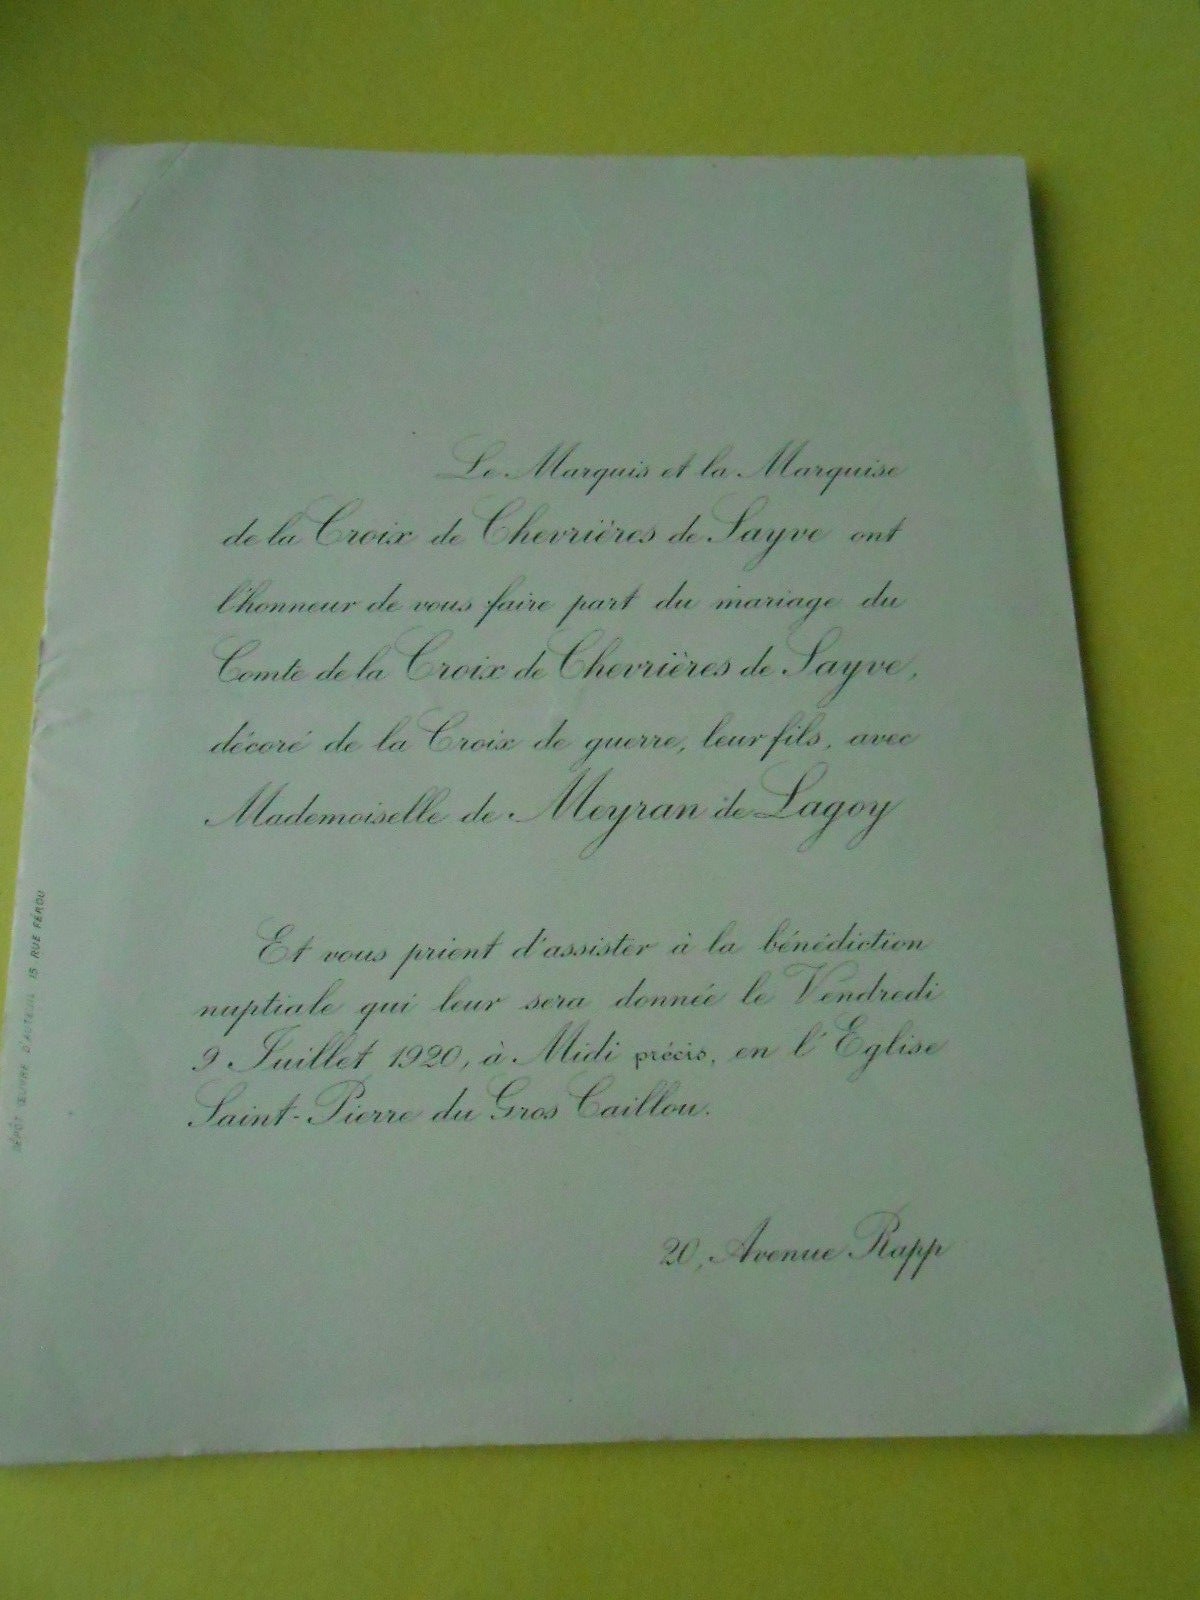 Le Marquis et la Marquise
de la Croix de Chevrières de Sayve ont
l'honneur de vous faire part du mariage du
Comte de la Croix de Chevrières de Sayve,
décoré de la Croix de guerre, leur fils, avec
Mademoiselle de Meyran de Lagoy
Et vous prient d'assister à la bénédiction
nuptiale qui leur sera donnée le Vendredi
9 Juillet 1920, à Midi précis, en l'Eglise
Saint-Pierre du Gros Caillou.
20, Avenue Rapp
DÉPÔT ŒUVRE D'AUTEUIL 15 RUE FÉROU